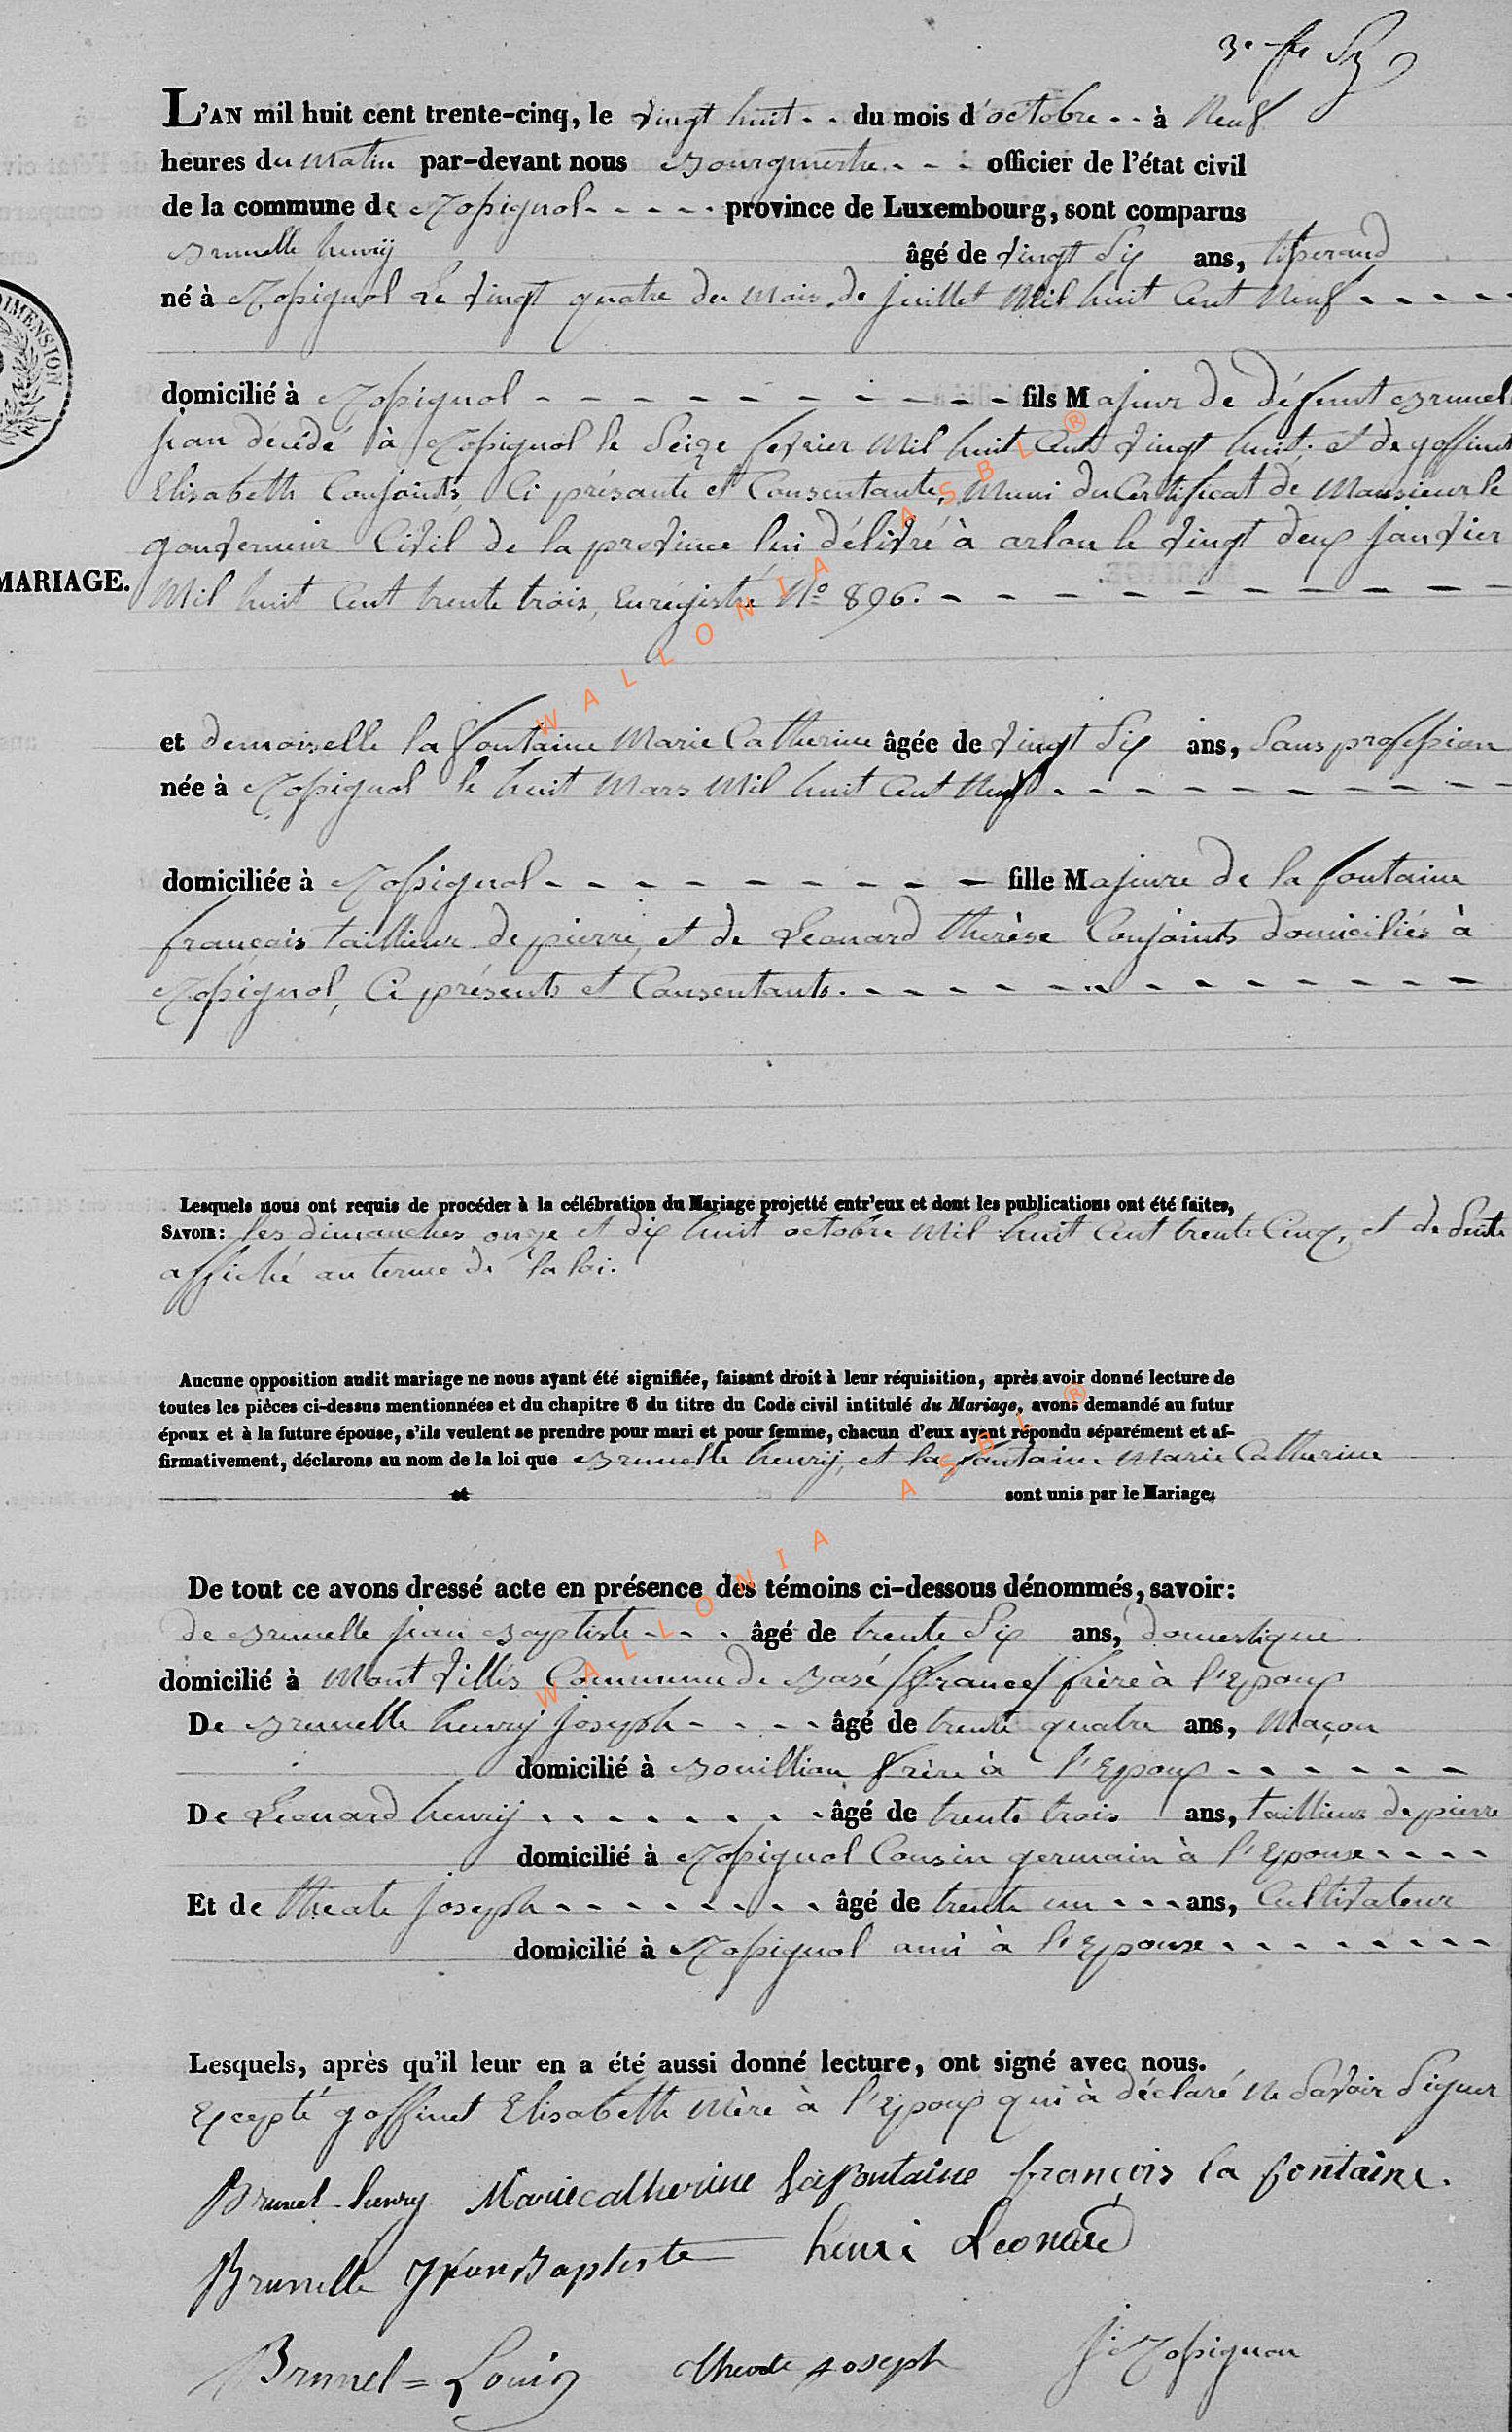 L'AN mil huit cent trente-cinq, le vingt huit - - du mois d'octobre - - à Neuf
heures du Matin par-devant nous Bourgmestre - - - officier de l'état civil
de la commune de Rossignol - - - - - province de Luxembourg, sont comparus
Brunelle henrij âgé de vingt Six ans, tisserand
né à Rossignol Le vingt quatre du Mois de juillet Mil huit Cent Neuf - - - - -
DIMENSION
domicilié à Rossignol - - - - - - - - - - fils Majeur de défunt Brunell
jean décédé à Rossignol le Seize fevrier Mil huit Cent vingt huit, et de goffinet
Elisabeth Conjoints, Ci présante et Consentante, Muni du Certificat de Monsieur le
gouverneur Civil de la province lui délivré à arlon le vingt deux janvier
MARIAGE. Mil huit Cent trente trois, Enregistré Nº 896. - - - - - - - - -
et demoiselle la fontaine Marie Catherine âgée de vingt Six ans, Sans profession
née à Rossignol le huit Mars Mil huit Cent Neuf - - - - - - - - - -
domiciliée à Rossignol - - - - - - - - - - fille Majeure de la fontaine
français taillieur de pierre, et de Leonard thérèse Conjoints domiciliés à
Rossignol, Ci présents et Consentants. - - - - - - - - - - - -
Lesquels nous ont requis de procéder à la célébration du Mariage projetté entr'eux et dont les publications ont été faites,
SAVOIR: les dimanches onze et dix huit octobre Mil huit Cent trente Cinq, et de Suite
affiché au terme de la loi.
Aucune opposition audit mariage ne nous ayant été signifiée, faisant droit à leur réquisition, après avoir donné lecture de
toutes les pièces ci-dessus mentionnées et du chapitre 6 du titre du Code civil intitulé du Mariage, avons demandé au futur
époux et à la future épouse, s'ils veulent se prendre pour mari et pour femme, chacun d'eux ayant répondu séparément et af-
firmativement, déclarons au nom de la loi que Brunelle henrij, et la fontaine Marie Catherine
et sont unis par le Mariage,
De tout ce avons dressé acte en présence des témoins ci-dessous dénommés, savoir:
de Brunelle jean Baptiste - - - - âgé de trente Six ans, domestique
domicilié à Mont villés Commune de Basé /france/ frère à l'Epoux
De Brunelle henrij joseph - - - - âgé de trente quatre ans, Maçon
domicilié à Bouillion frère à l'Epoux - - - - - -
De Leonard henrij - - - - - - - - âgé de trente trois ans, taillieur de pierre
domicilié à Rossignol Cousin germain à l'Epouse - - - -
Et de théate joseph - - - - - - - - âgé de trente un - - - ans, Cultivateur
domicilié à Rossignol ami à l'Epouse - - - - - - - -
Lesquels, après qu'il leur en a été aussi donné lecture, ont signé avec nous.
Excepté goffinet Elisabeth Mère à l'Epoux qui à déclaré Ne Savoir Signer
Brunel henry Marie catherine lafontaine françois la fontaine.
Brunelle Jean Baptiste henri Leonard
Brunel = Louis Theate joseph J: Rossignon
WALLONIA ASBL ®
WALLONIA ASBL ®